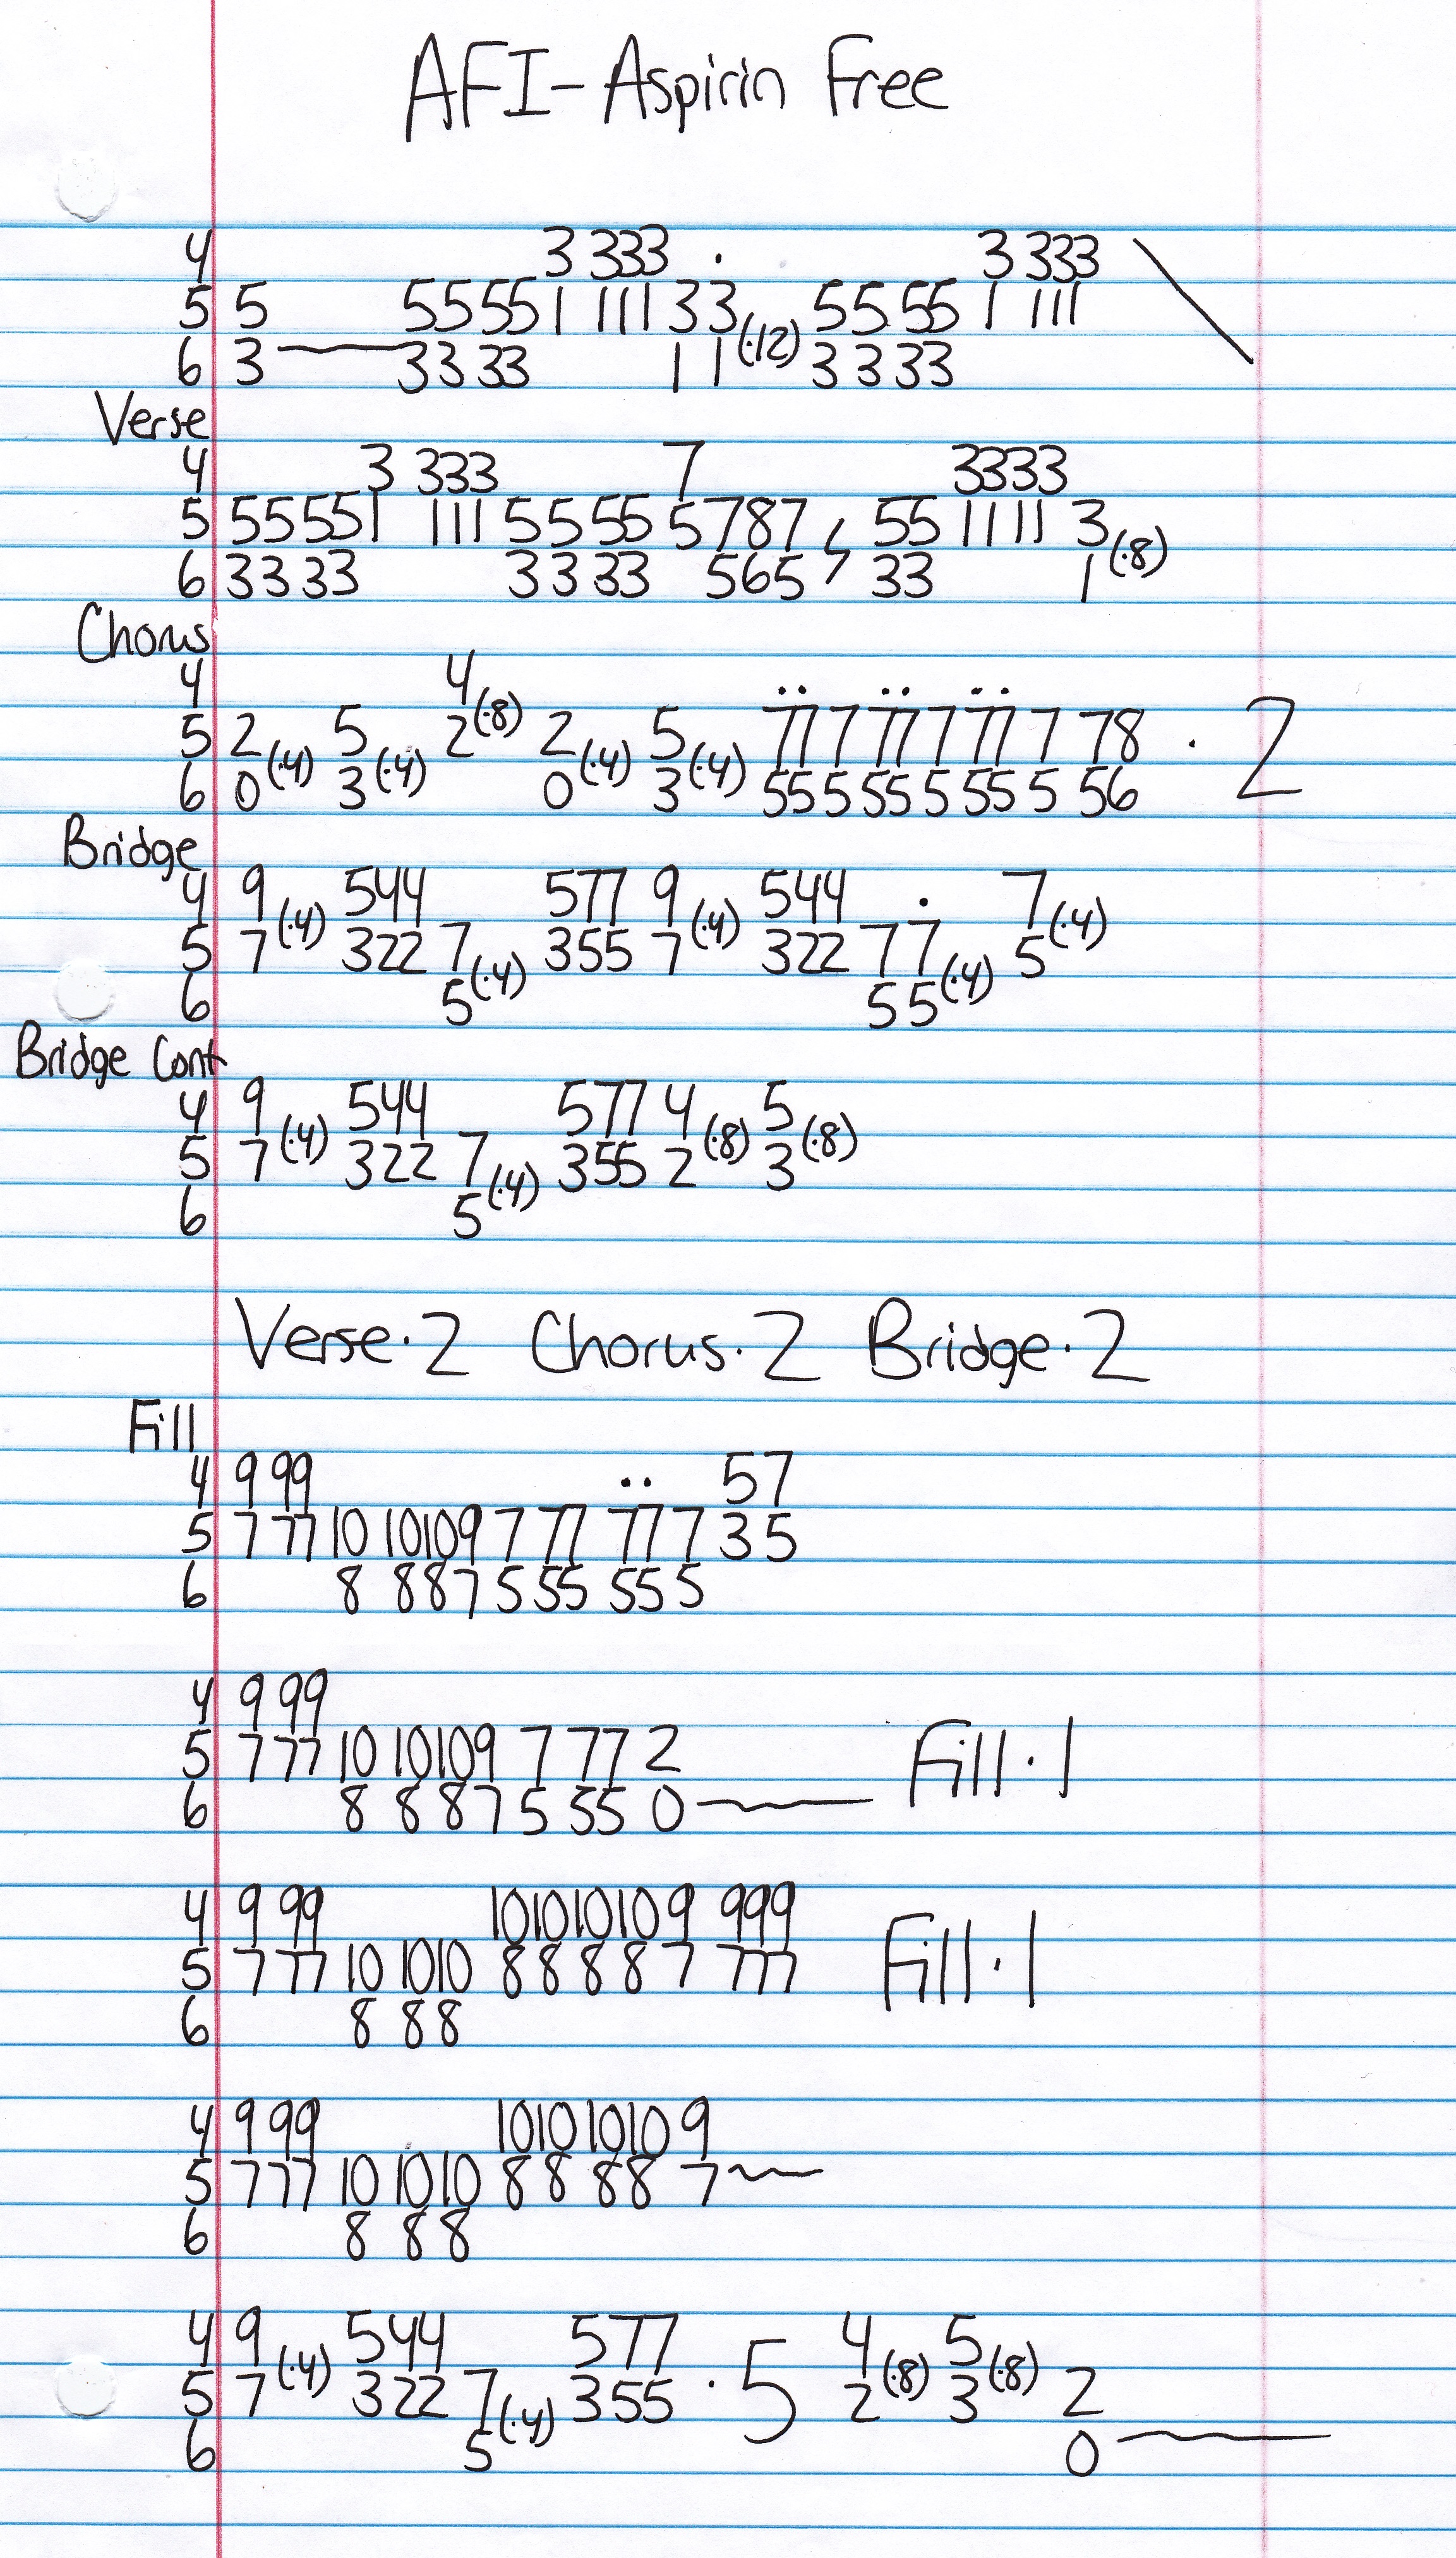 AFI - Aspirin Free
4 3 333 .
5 5 5555 1 111 33 (·12) 5555 1 111
6 3 3333 11 3333
Verse
4 3 333 7 3333
5 55551 111 5555 5787 55 1111 3 (·8)
6 3333 3333 565 33 1
Chorus
4 4 (·8)
5 2 (·4) 5 (·4) 2 2 (·4) 5 (·4) 77 7 77 7 77 7 78 · 2
6 0 3 0 3 55 5 55 5 55 5 56
Bridge
4 9 (·4) 544 577 9 (·4) 544 . 7 (·4)
5 7 322 7 (·4) 355 7 322 77 (·4) 5
6 5 55
Bridge Cont
4 9 (·4) 544 577 4 (·8) 5 (·8)
5 7 322 7 (·4) 355 2 3
6 5
Verse·2 Chorus·2 Bridge·2
Fill
4 9 99 57
5 7 77 10 10109 7 77 77 7 35
6 8 887 5 55 55 5
4 9 99
5 7 77 10 10109 7 77 2 Fill·1
6 8 887 5 55 0
4 9 99 10101010 9 999
5 7 77 10 1010 8888 7 777 Fill·1
6 8 88
4 9 99 1010 1010 9
5 7 77 10 1010 88 88 7
6 8 88
4 9 (·4) 544 577 4 (·8) 5 (·8)
5 7 322 7 (·4) 355 · 5 2 3 2
6 5 0